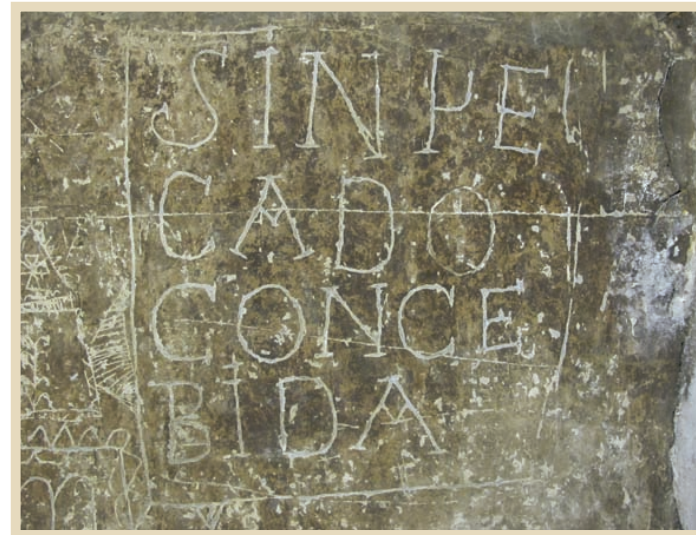 SIN PE
CADO
CONCE
BIDA